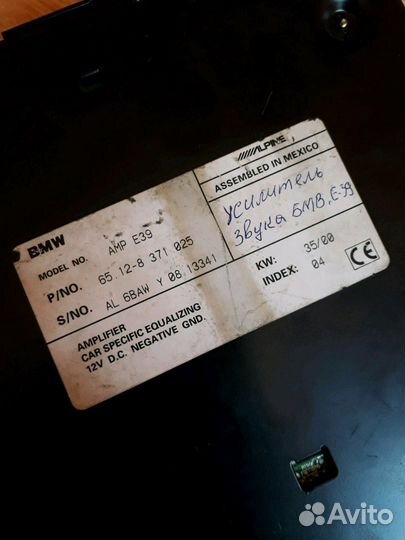 BMW
MODEL NO. AMP E39
P/NO. 65.12-8 371 025
S/NO. AL 6BAW Y 08.13341
AMPLIFIER
CAR SPECIFIC EQUALIZING
12V D.C. NEGATIVE GND.
ALPINE
ASSEMBLED IN MEXICO
усилитель
звука БМВ. Е-39
KW: 35/00
INDEX: 04
CE
Avito